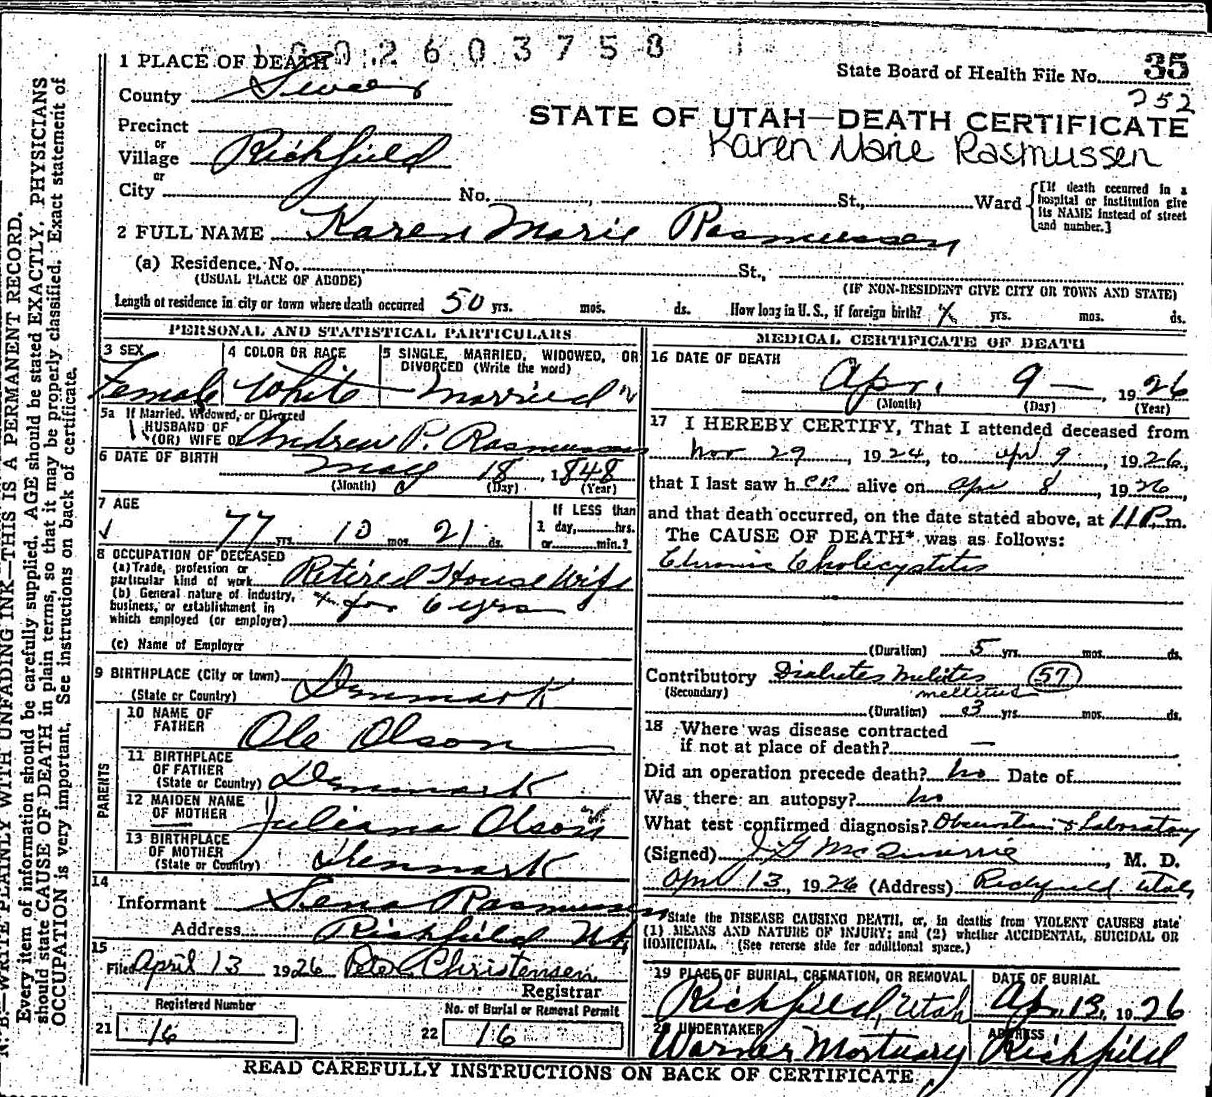 1002603758
1 PLACE OF DEATH
State Board of Health File No. 35
252
County Sevier
STATE OF UTAH—DEATH CERTIFICATE
Karen Marie Rasmussen
Precinct
or
Village Richfield
or
City No. St., Ward
[If death occurred in a hospital or institution give its NAME instead of street and number.]
2 FULL NAME Karen Marie Rasmussen
(a) Residence. No. St.,
(USUAL PLACE OF ABODE) (IF NON-RESIDENT GIVE CITY OR TOWN AND STATE)
Length of residence in city or town where death occurred 50 yrs. mos. ds. How long in U. S., if foreign birth? yrs. mos. ds.
PERSONAL AND STATISTICAL PARTICULARS
3 SEX Female
4 COLOR OR RACE White
5 SINGLE, MARRIED, WIDOWED, OR DIVORCED (Write the word) Married
5a If Married, Widowed, or Divorced
HUSBAND OF
(OR) WIFE OF Andrew P. Rasmussen
6 DATE OF BIRTH May 18, 1848
(Month) (Day) (Year)
7 AGE 77 yrs. 10 mos. 21 ds.
If LESS than
1 day, hrs.
or min.?
8 OCCUPATION OF DECEASED
(a) Trade, profession or
particular kind of work Retired House Wife
(b) General nature of industry, for 6 yrs
business, or establishment in
which employed (or employer)
(c) Name of Employer
9 BIRTHPLACE (City or town)
(State or Country) Denmark
PARENTS
10 NAME OF FATHER Ole Olson
11 BIRTHPLACE OF FATHER
(State or Country) Denmark
12 MAIDEN NAME OF MOTHER Juliana Olson
13 BIRTHPLACE OF MOTHER
(State or Country) Denmark
14
Informant Lena Rasmussen
Address Richfield Ut,
15
Filed April 13 1926 Peter Christensen
Registrar
Registered Number
21 16
No. of Burial or Removal Permit
22 16
MEDICAL CERTIFICATE OF DEATH
16 DATE OF DEATH
Apr. 9 — , 1926
(Month) (Day) (Year)
17 I HEREBY CERTIFY, That I attended deceased from
Nov 29, 1924, to Apr 9, 1926,
that I last saw her alive on Apr 8, 1926,
and that death occurred, on the date stated above, at 11 P.m.
The CAUSE OF DEATH* was as follows:
Chronic Cholicystitis
(Duration) 5 yrs. mos. ds.
Contributory Diabetes Melitis 57
(Secondary) mellitus
(Duration) 3 yrs. mos. ds.
18 Where was disease contracted
if not at place of death? —
Did an operation precede death? no Date of
Was there an autopsy? no
What test confirmed diagnosis? Observation & Laboratory
(Signed) J G McQuarrie, M. D.
Apr 13, 1926 (Address) Richfield Utah
*State the DISEASE CAUSING DEATH, or, in deaths from VIOLENT CAUSES state
(1) MEANS AND NATURE OF INJURY; and (2) whether ACCIDENTAL, SUICIDAL OR
HOMICIDAL. (See reverse side for additional space.)
19 PLACE OF BURIAL, CREMATION, OR REMOVAL
Richfield, Utah
DATE OF BURIAL
Apr. 13, 1926
20 UNDERTAKER
Warner Mortuary
ADDRESS
Richfield
READ CAREFULLY INSTRUCTIONS ON BACK OF CERTIFICATE
N. B.—WRITE PLAINLY WITH UNFADING INK—THIS IS A PERMANENT RECORD.
Every item of information should be carefully supplied. AGE should be stated EXACTLY. PHYSICIANS
should state CAUSE OF DEATH in plain terms, so that it may be properly classified. Exact statement of
OCCUPATION is very important. See instructions on back of certificate.